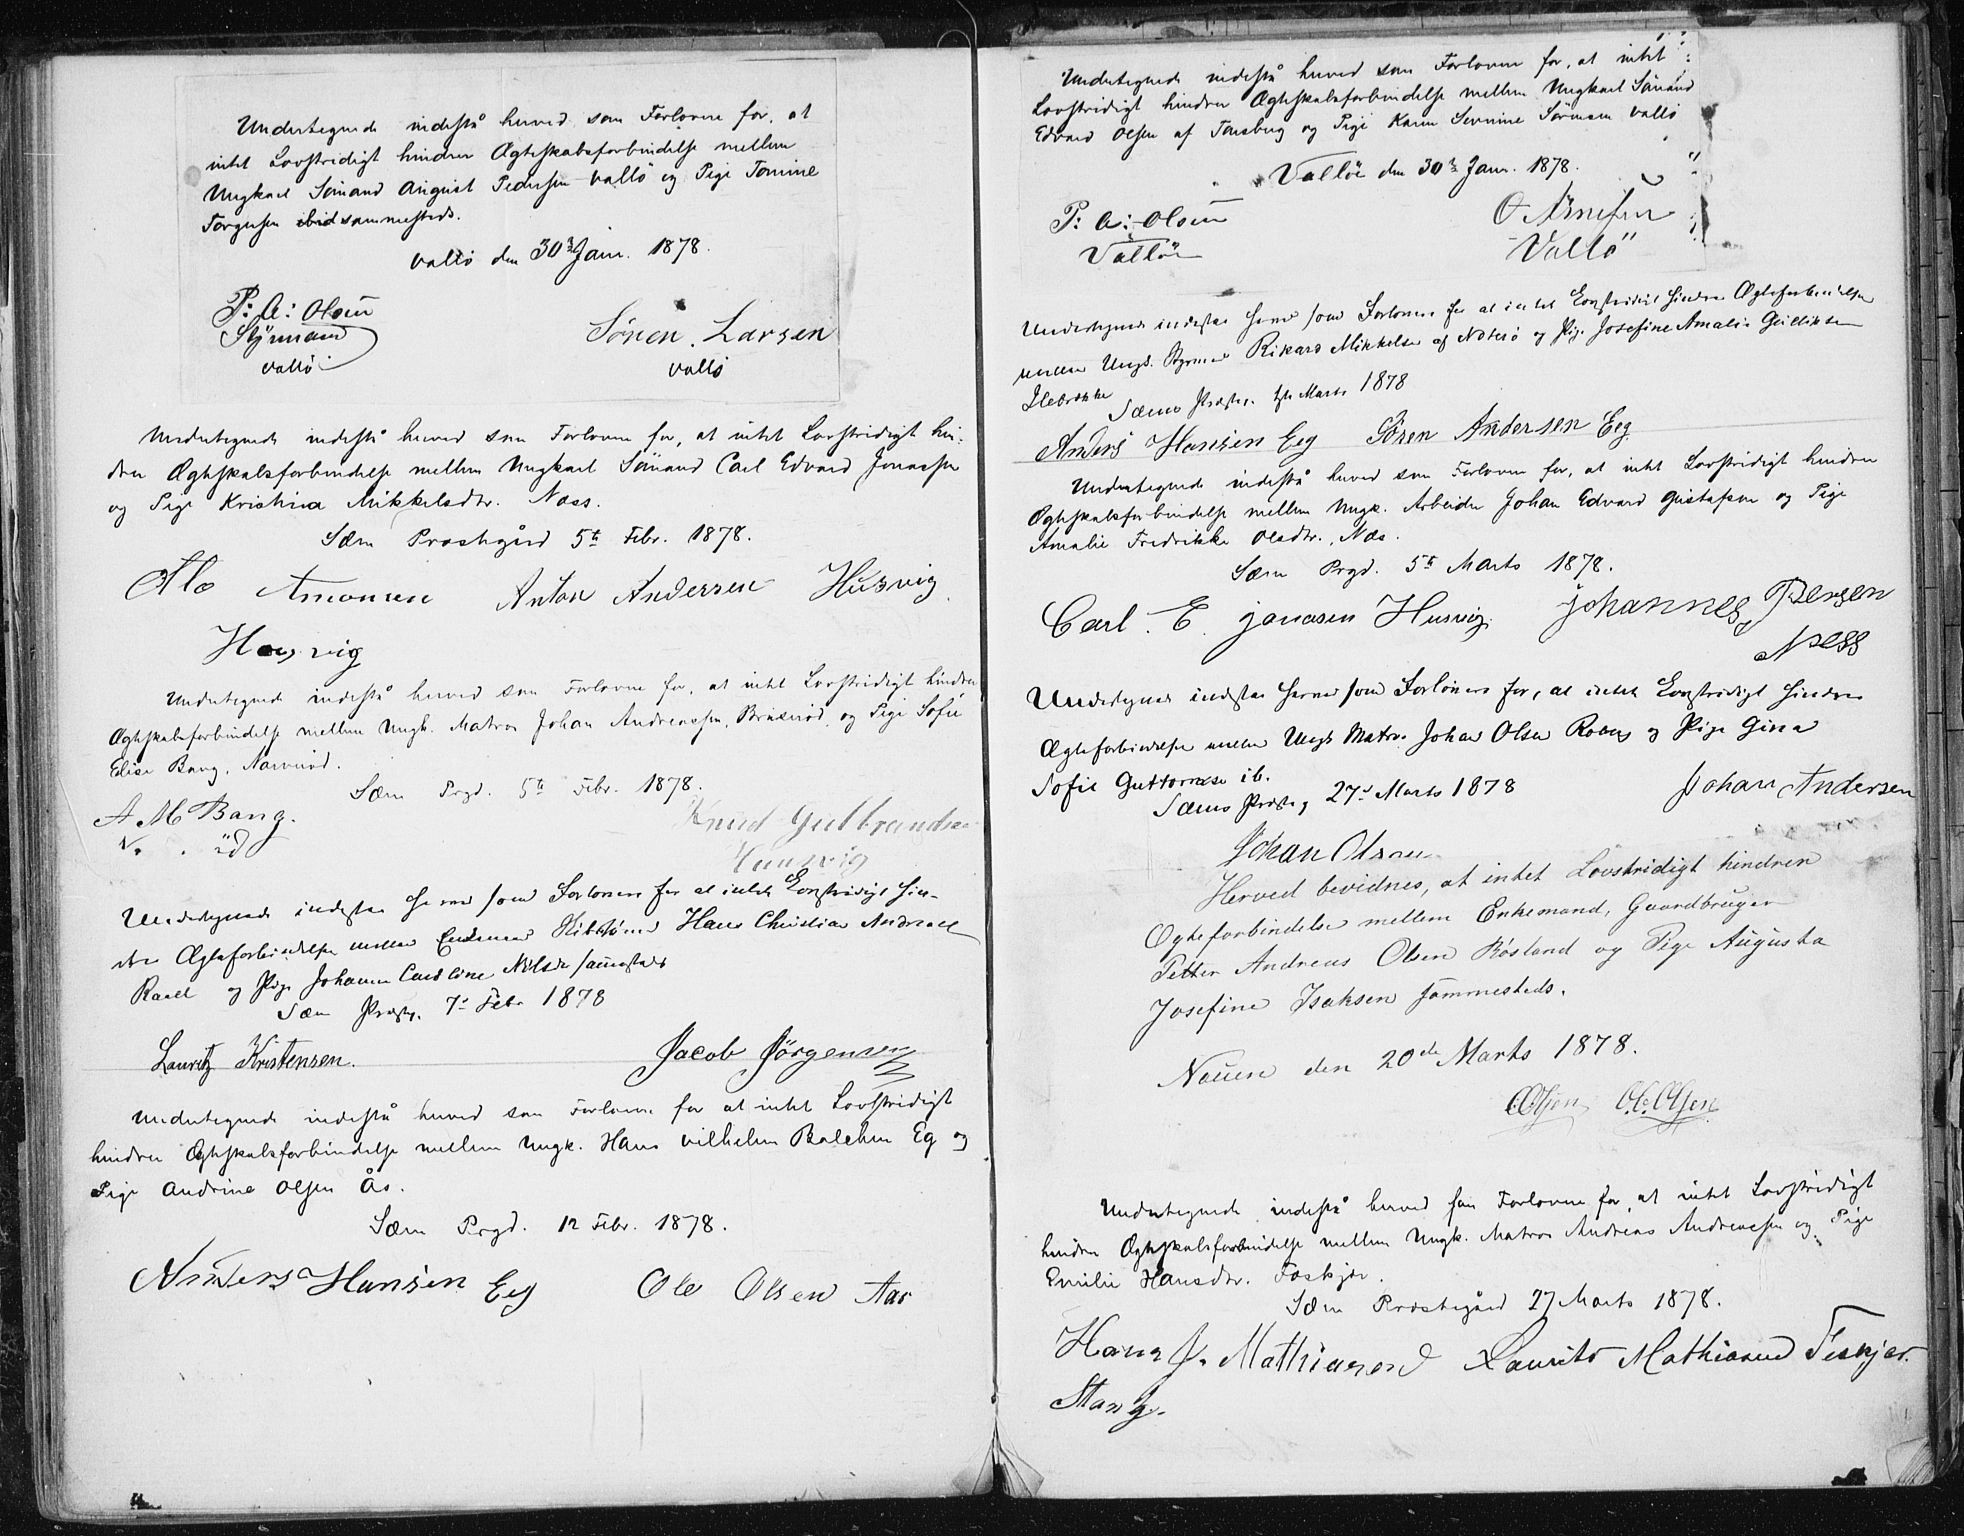 Undertegnede indestå herved som Forlovere for, at
intet Lovstridigt hindrer Ægteskabsforbindelse mellem
Ungkarl Sömand August Pedersen Vallö og Pige Tomine
Torgersen ibid sammesteds.
Vallö den 30 Jan. 1878.
P: A: Olsen
Styrmand
Vallö
Sören Larsen
Vallö
Undertegnede indestå herved som Forlovere for, at intet Lovstridigt hin-
drer Ægteskabsforbindelse mellem Ungkarl Sömand Carl Edvard Jonassen
og Pige Kristina Mikkelsdtr. Næss.
Sæm Prestegård 5te Febr. 1878.
Ole Amonsen Anton Andersen Husvig
Husvig
Undertegnede indestå herved som Forlovere for, at intet Lovstridigt hindrer
Ægteskabsforbindelse mellem Ungk. Matros Johan Andreassen, og Pige Sofie
Elise Bang,
Sæm Prgd. 5te Febr. 1878.
A M Bang.
Knud Gulbrandsen
Husvig
Undertegnede indestaa herved som Forlovere for at intet Lovstridigt hin-
drer Ægteforbindelse mellem Enkemand Hans Christian Andreas
Rael og Pige Johanne Caroline Nilsdr sammesteds
Sæm Præstg. 7de Febr 1878
Lauritz Kristensen.
Jacob Jörgensen
Undertegnede indestå herved som Forlovere for at intet Lovstridigt
hindrer Ægteskabsforbindelse mellem Ungk. Hans Vilhelm Balchen Eg og
Pige Andrine Olsen Ås.
Sæm Prgd. 12 Febr. 1878.
Anders Hansen Eeg Ole Olsen Aas
Undertegnede indestå herved som Forlovere for, at intet
Lovstridigt hindrer Ægteskabsforbindelse mellem Ungkarl Sömand
Edvard Olsen af Tönsberg og Pige Karen Severine Sörensen Vallö
Vallöe den 30 Jan. 1878.
P: A: Olsen
Vallöe
O Arnesen
Vallö
Undertegnede indestaa herved som Forlovere for at intet Lovstridigt hindrer Ægteforbindelse
mellem Ungk. Styrmand Rikard Mikkelsen af Nöterö og Pige Josefine Amalie Gulliksen
Ilebrække
Sæms Præstg. Marts 1878
Anders Hansen Eeg Sören Andersen Eeg
Undertegnede indestå herved som Forlovere for, at intet Lovstridigt hindrer
Ægteskabsforbindelse mellem Ungk. Arbeider Johan Edvard Gustafsen og Pige
Amalie Fredrikke Olsdtr. Næs.
Sæm Prgd. 5te Marts 1878.
Carl. E. Jonasen Husvig. Johannes Bersen
Næss
Undertegnede indestaa herved som Forlovere for, at intet Lovstridigt hindrer
Ægteforbindelse mellem Ungk Matros Johan Olsen og Pige Gina
Sofie Guttormsen ib.
Sæms Præstg 27de Marts 1878
Johan Andersen
Johan Olsen
Herved bevidnes, at intet Lovstridigt hindrer
Ægteforbindelse mellem Enkemand, Gaardbruger
Petter Andreas Olsen Rösland og Pige Augusta
Josefine Isaksen sammesteds.
Nauen den 20de Marts 1878.
O.Olsen O.C.Olsen
Undertegnede indestå herved som Forlovere for, at intet Lovstridigt
hindrer Ægteskabsforbindelse mellem Ungk. Matros Andreas Andreassen og Pige
Emilie Hansdtr. Feskjær.
Sæm Præstegård 27 Marts 1878.
Hans J. Mathiasen Laurits Mathiasen Feskjær.
Stang.